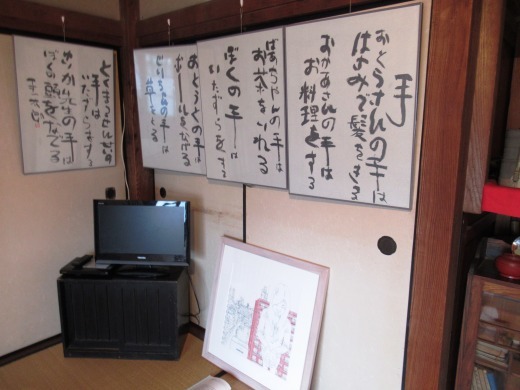 手
おとうさんの手は
はさみで髪をきる
おかあさんの手は
お料理をする
ばあちゃんの手は
お茶をいれる
ぼくの手は
いたずらをする
おとうとの手は
ボールをなげる
じいちゃんの手は
草をとる
手は
の手は
ぼくの頭をなでる